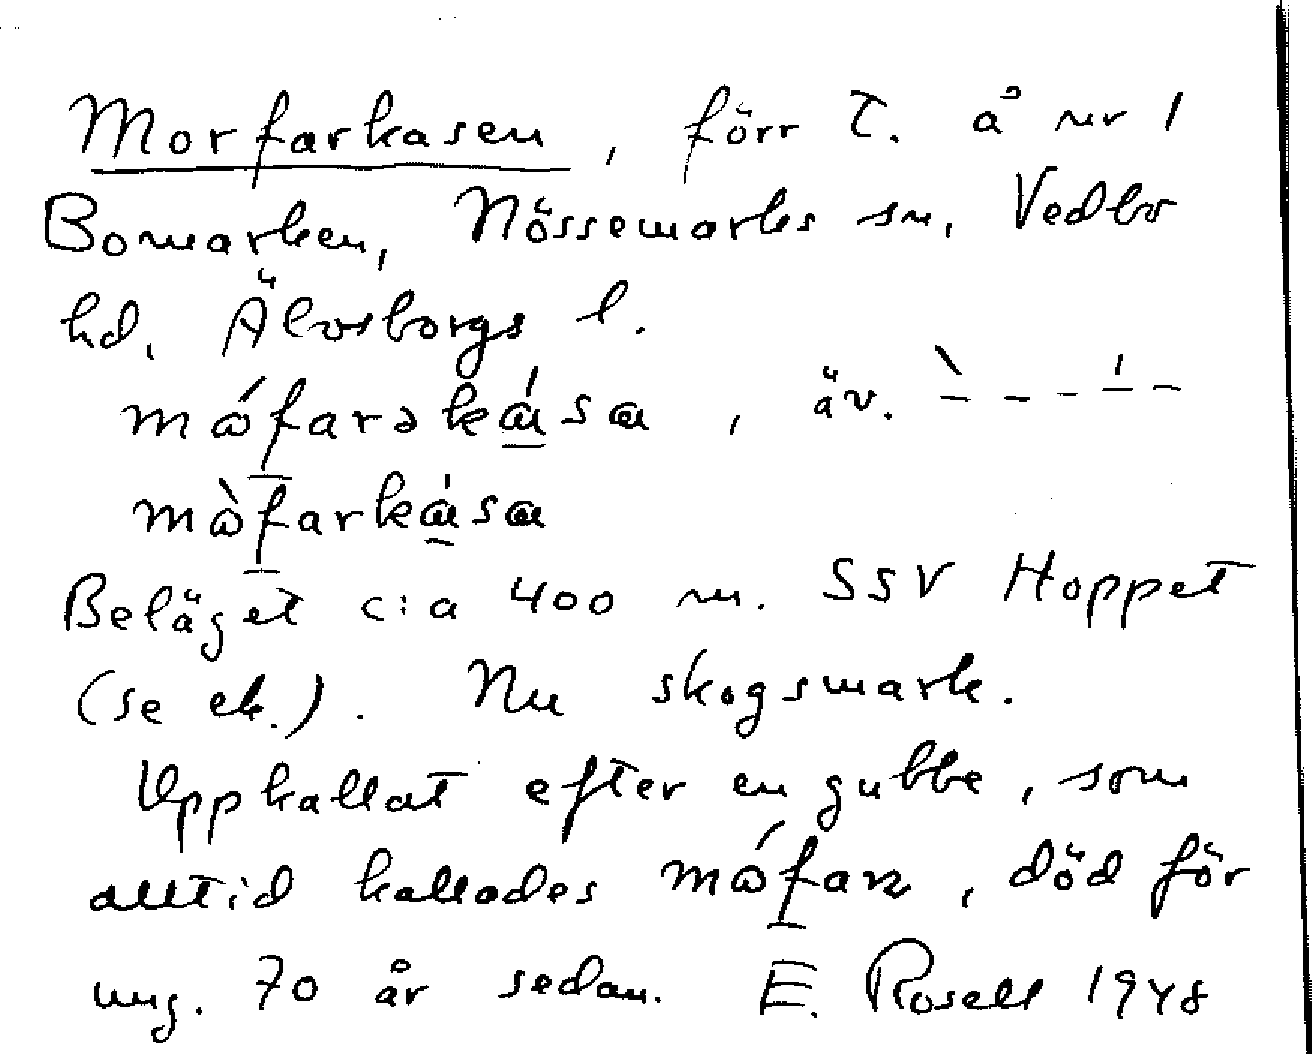 Morfarkasen, förr T. å nr 1
Bomarken, Nössemarks sn, Vedbo
hd, Älvsborgs l.
mófarəkása, äv. ̀– – – ́– –
mòfarkása
Beläget c:a 400 m. SSV Hoppet
(se ek.). Nu skogsmark.
Uppkallat efter en gubbe, som
alltid kallades mófar, död för
ung. 70 år sedan. E. Rosell 1948